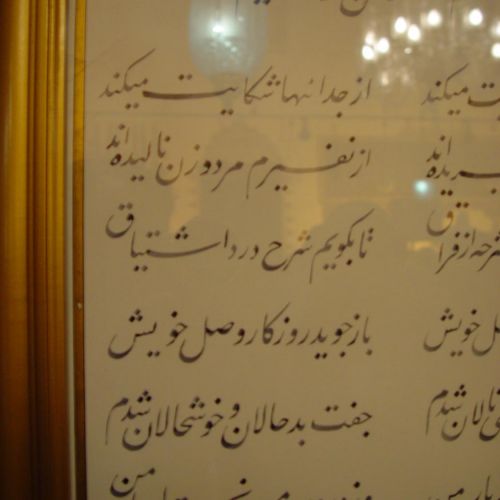 ت میکند از جدائیها شکایت میکند
ببریده اند از نفیرم مرد و زن نالیده اند
شرحه از فراق تا بگویم شرح درد اشتیاق
صل خویش باز جوید روزگار وصل خویش
نالان شدم جفت بدحالان و خوشحالان شدم
من